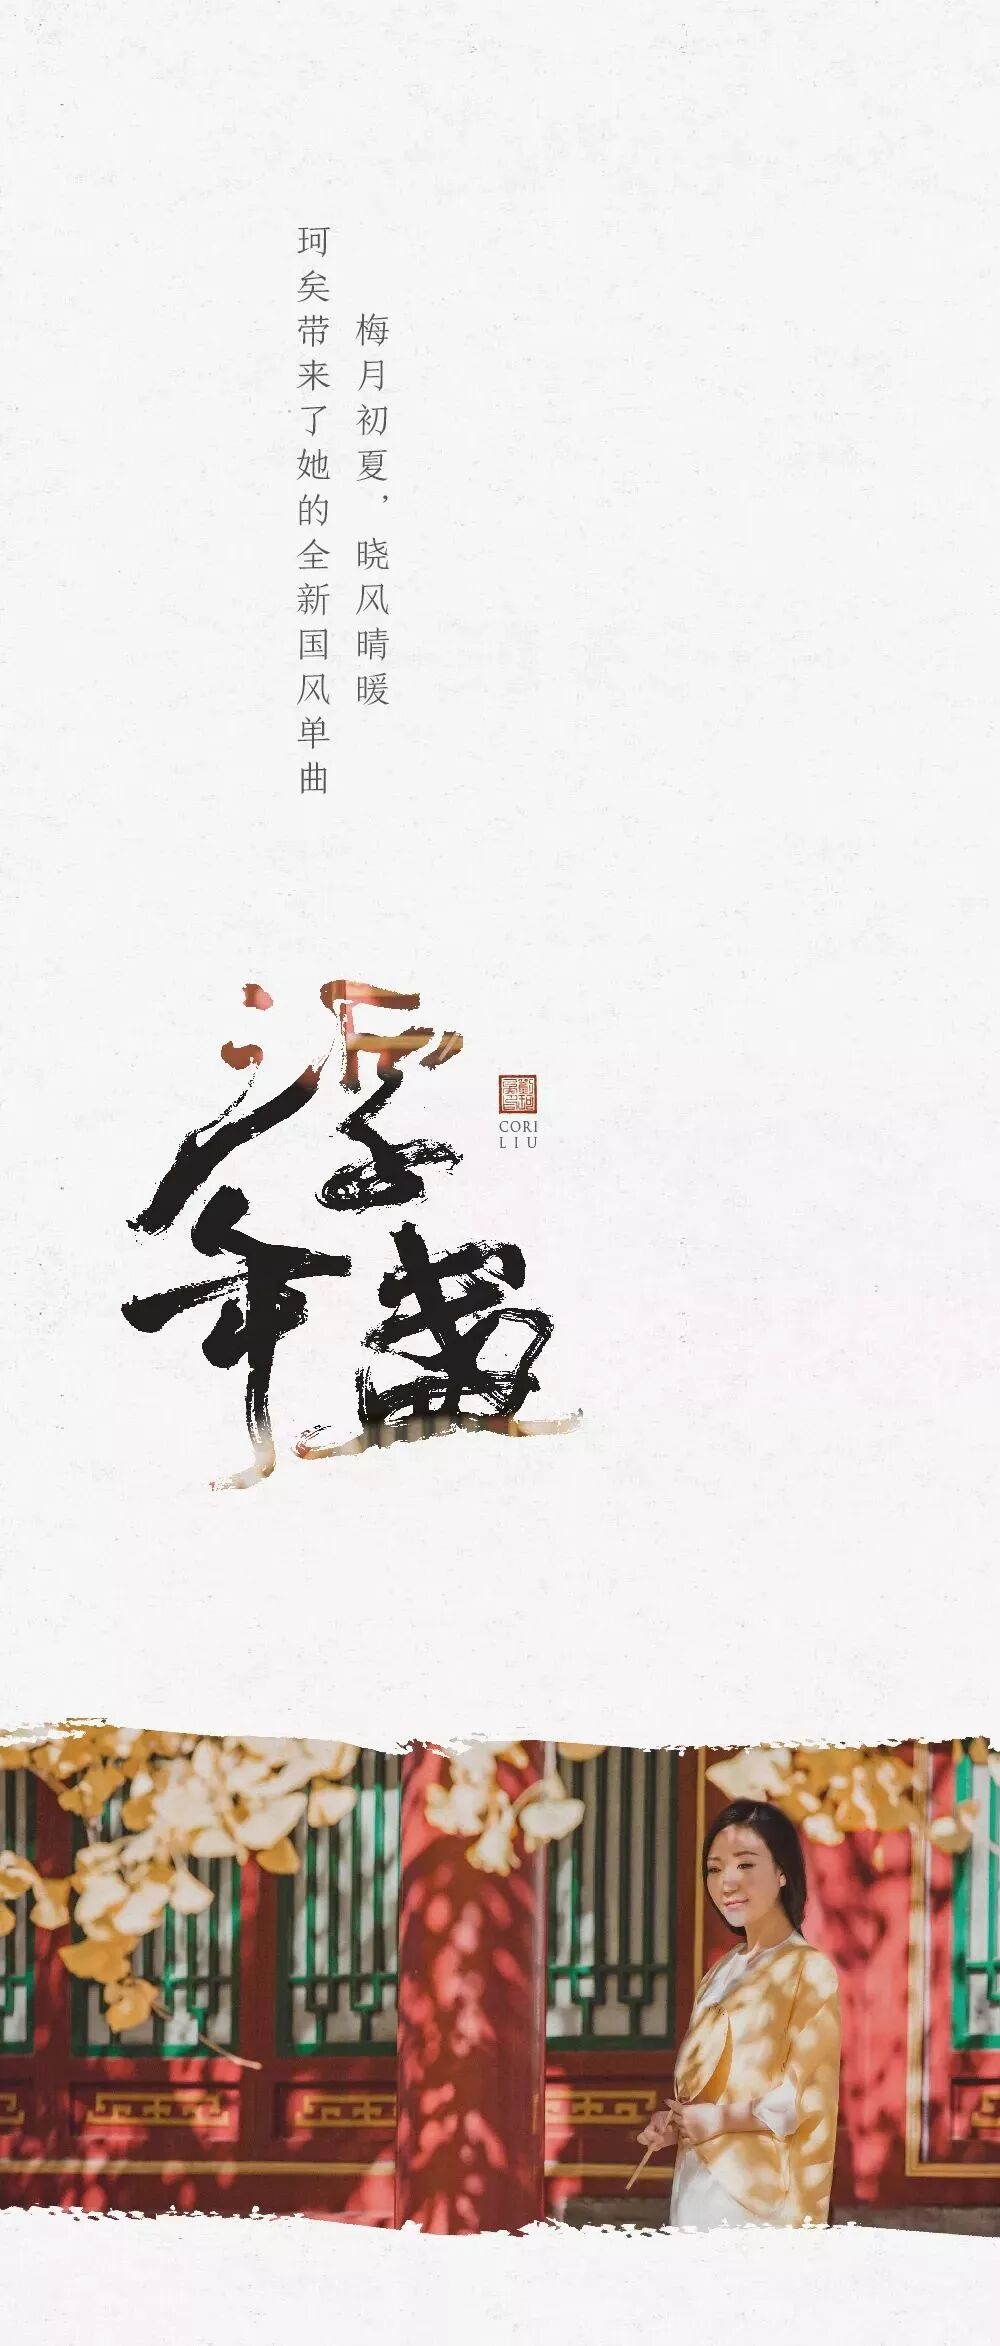 梅月初夏，晓风晴暖
珂矣带来了她的全新国风单曲
浮年画
CORI
LIU